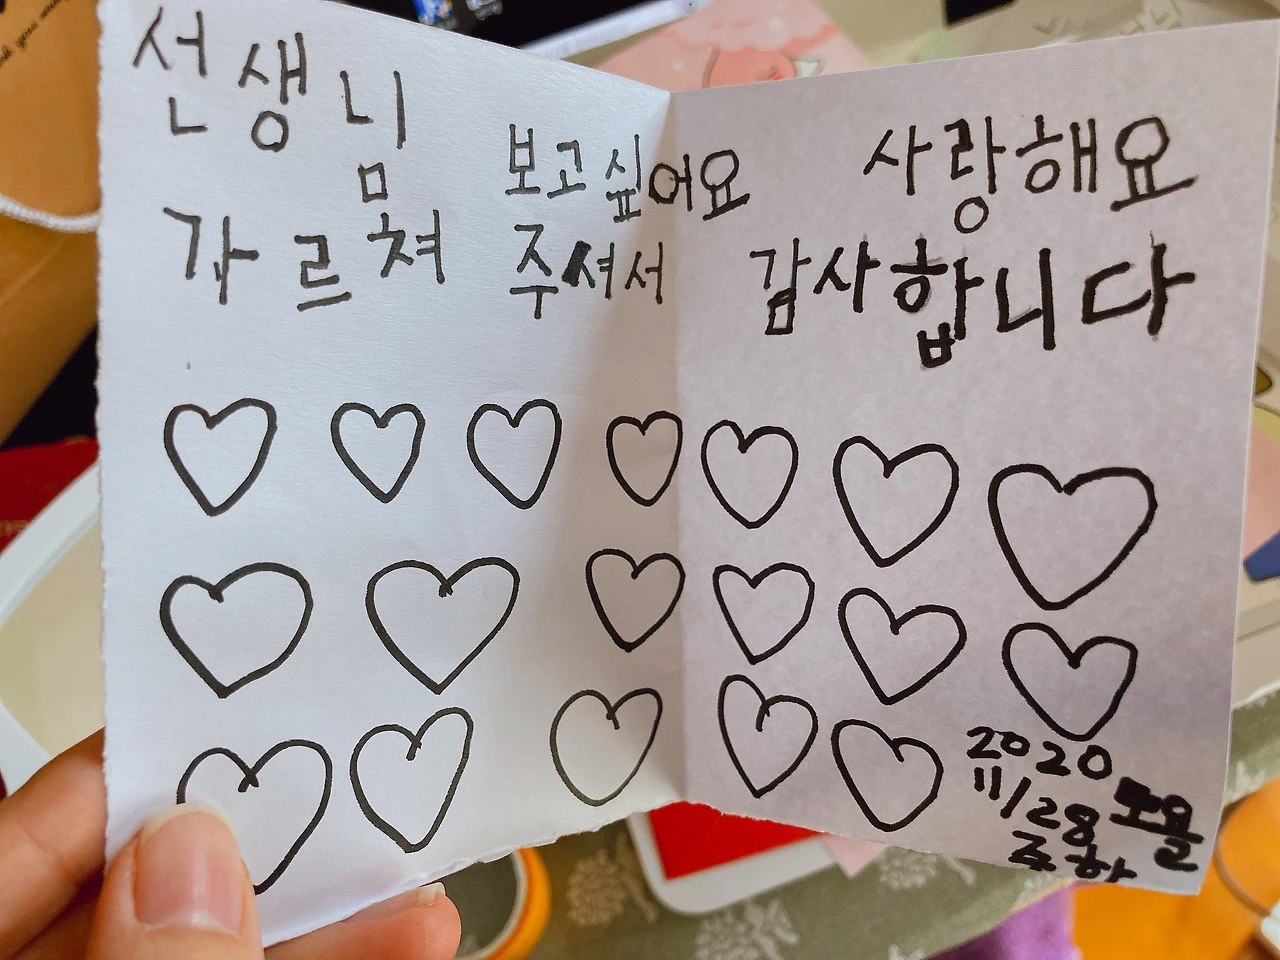 선생님 보고싶어요 사랑해요
가르쳐 주셔서 감사합니다
2020
11/28 토요일